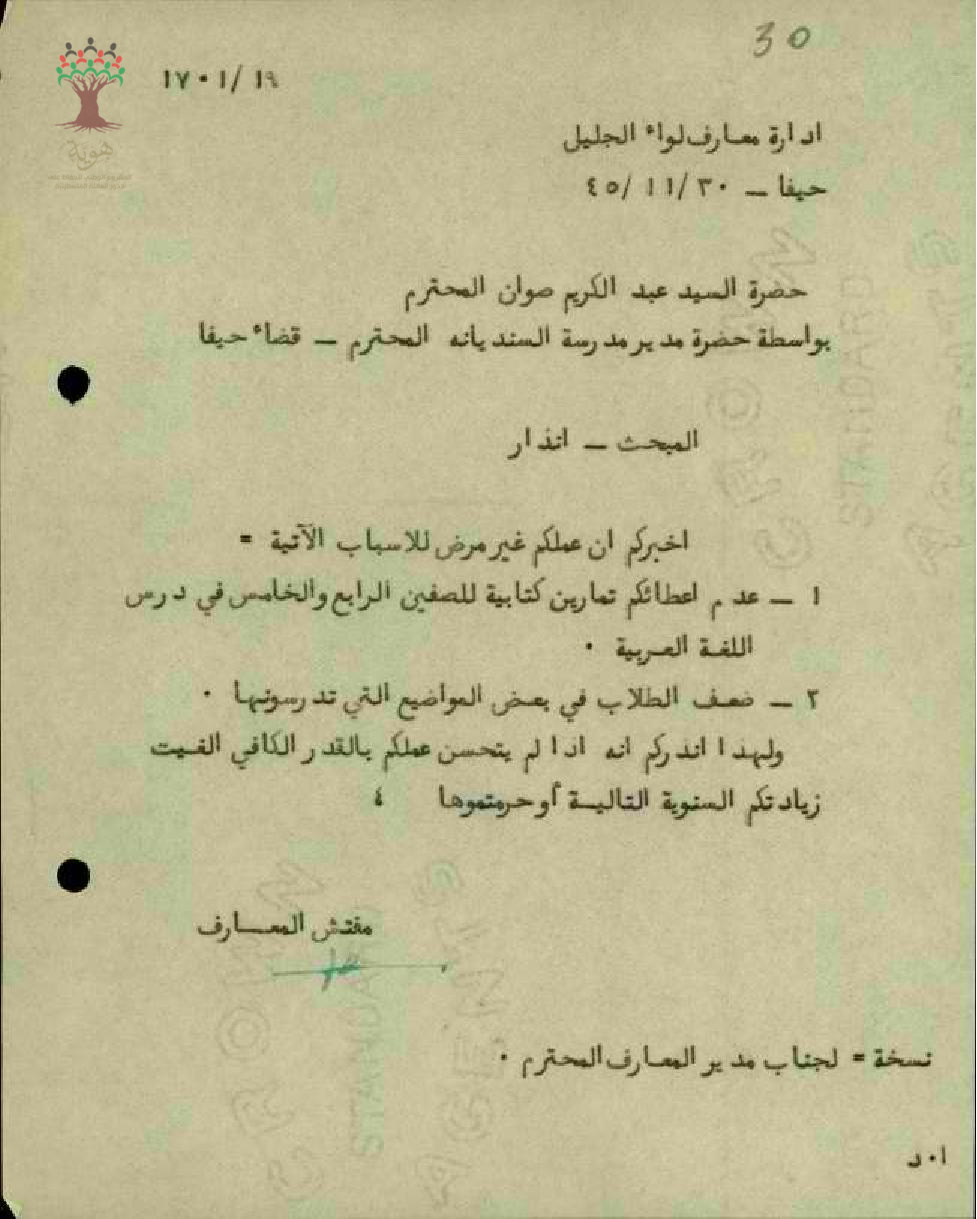 30
١٧٠١/١٩
ادارة معارف لواء الجليل
حيفا – ٣٠/١١/٤٥
حضرة السيد عبد الكريم صوان المحترم
بواسطة حضرة مدير مدرسة السنديانه المحترم – قضاء حيفا
المبحث – انذار
اخبركم ان عملكم غير مرض للاسباب الآتية =
١ – عدم اعطائكم تمارين كتابية للصفين الرابع والخامس في درس
اللغة العربية ٠
٢ – ضعف الطلاب في بعض المواضيع التي تدرسونها ٠
ولهذا انذركم انه اذا لم يتحسن عملكم بالقدر الكافي الغيت
زيادتكم السنوية التالية أو حرمتموها ٤
مفتش المعارف
نسخة = لجناب مدير المعارف المحترم ٠
ا٠د
هوية
CROWN
STANDARD
CROWN
STANDARD